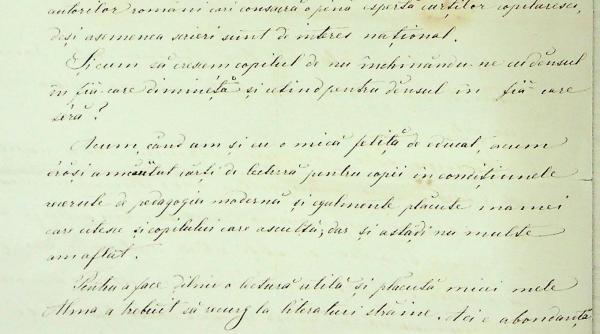 autorilor români cari consacră o pénă espertă cărților copilăresci,
deși asemenea scrieri sûnt de interes național.
Și cum să cresem copilul de nu închinându-ne cu dênsul
în fiă-care diminéță și cetind pentru dênsul în fiă care
séră?
Acum, când am și eu o mică fetiță de educat, acum
érăși am căutat cărți de lectură pentru copii în condițiunele
cerute de pedagogia modernă și egalmente plăcute mamei
care citesce și copilului care ascultă; dar și astăḑi nu multe
am aflat.
Pentru a face ḑilnic o lectură utilă și plăcută micei mele
Alma a trebuit să recurg la literaturi străine. Aci e abondanță